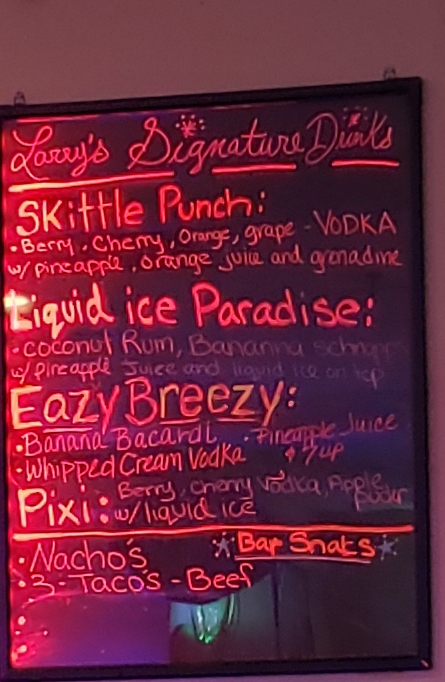 Larry's Signature Drinks
Skittle Punch:
• Berry, Cherry, Orange, grape - VODKA
w/ pineapple, orange juice and grenadine
Liquid ice Paradise:
• coconut Rum, Bananna schnapps
w/ pineapple Juice and liquid ice on top
Eazy Breezy:
• Banana Bacardi • Pineapple Juice
• Whipped Cream Vodka & 7up
Pixi: Berry, Cherry Vodka, Apple
w/ liquid ice
Bar Snaks
• Nacho's
• 3-Taco's - Beef